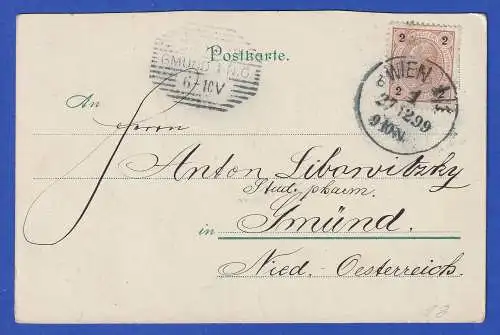 Postkarte.
GMÜND I N.Ö.
6 10 V
2 2
2
WIEN 1/1
1
27 12 99
9 10N
An
Herrn
Anton Libowitzky
Stud. pharm.
in Gmünd.
Nied.-Oesterreich.